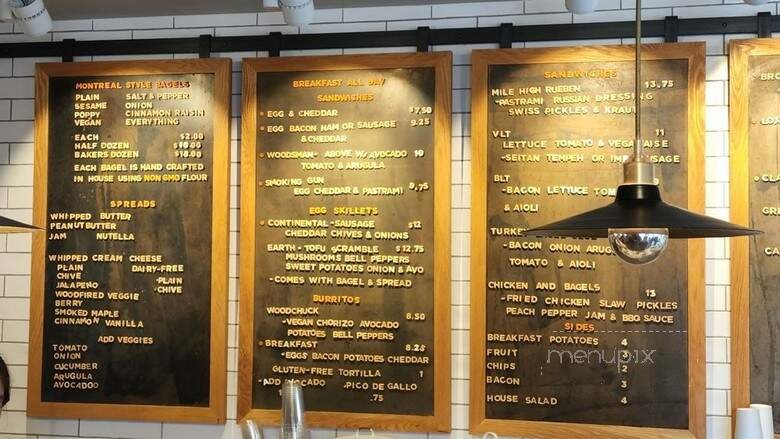 MONTREAL STYLE BAGELS
PLAIN SALT & PEPPER
SESAME ONION
POPPY CINNAMON RAISIN
VEGAN EVERYTHING
EACH $2.00
HALF DOZEN $10.00
BAKERS DOZEN $18.00
EACH BAGEL IS HAND CRAFTED
IN HOUSE USING NON GMO FLOUR
SPREADS
WHIPPED BUTTER
PEANUT BUTTER
JAM NUTELLA
WHIPPED CREAM CHEESE
PLAIN DAIRY-FREE
CHIVE -PLAIN
JALAPENO -CHIVE
WOODFIRED VEGGIE
BERRY
SMOKED MAPLE
CINNAMON VANILLA
ADD VEGGIES
TOMATO
ONION
CUCUMBER
ARUGULA
AVOCADOO
BREAKFAST ALL DAY
SANDWICHES
EGG & CHEDDAR $7.50
EGG BACON HAM OR SAUSAGE 9.25
& CHEDDAR
WOODSMAN- ABOVE W/AVOCADO 10
TOMATO & ARUGULA
SMOKING GUN
EGG CHEDDAR & PASTRAMI 9.75
EGG SKILLETS
CONTINENTAL-SAUSAGE $12
CHEDDAR CHIVES & ONIONS
EARTH- TOFU SCRAMBLE $12.75
MUSHROOMS BELL PEPPERS
SWEET POTATOES ONION & AVO
-COMES WITH BAGEL & SPREAD
BURRITOS
WOODCHUCK 8.50
-VEGAN CHORIZO AVOCADO
POTATOES BELL PEPPERS
BREAKFAST 8.25
-EGGS BACON POTATOES CHEDDAR
GLUTEN-FREE TORTILLA 1
-ADD AVOCADO .PICO DE GALLO
.75
SANDWICHES
MILE HIGH RUEBEN 13.75
-PASTRAMI RUSSIAN DRESSING
SWISS PICKLES & KRAUT
VLT 11
LETTUCE TOMATO & VEGANAISE
-SEITAN TEMPEH OR SAUSAGE
BLT
-BACON LETTUCE TOM
& AIOLI
TURKE
-BACON ONION ARU
TOMATO & AIOLI
CHICKEN AND BAGELS 13
-FRIED CHICKEN SLAW PICKLES
PEACH PEPPER JAM & BBQ SAUCE
SIDES
BREAKFAST POTATOES 4
FRUIT 3
CHIPS 2
BACON 3
HOUSE SALAD 4
menupix